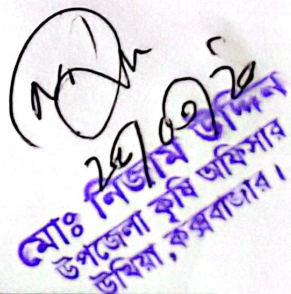 মোঃ নিজাম উদ্দিন
উপজেলা কৃষি অফিসার
উখিয়া, কক্সবাজার।